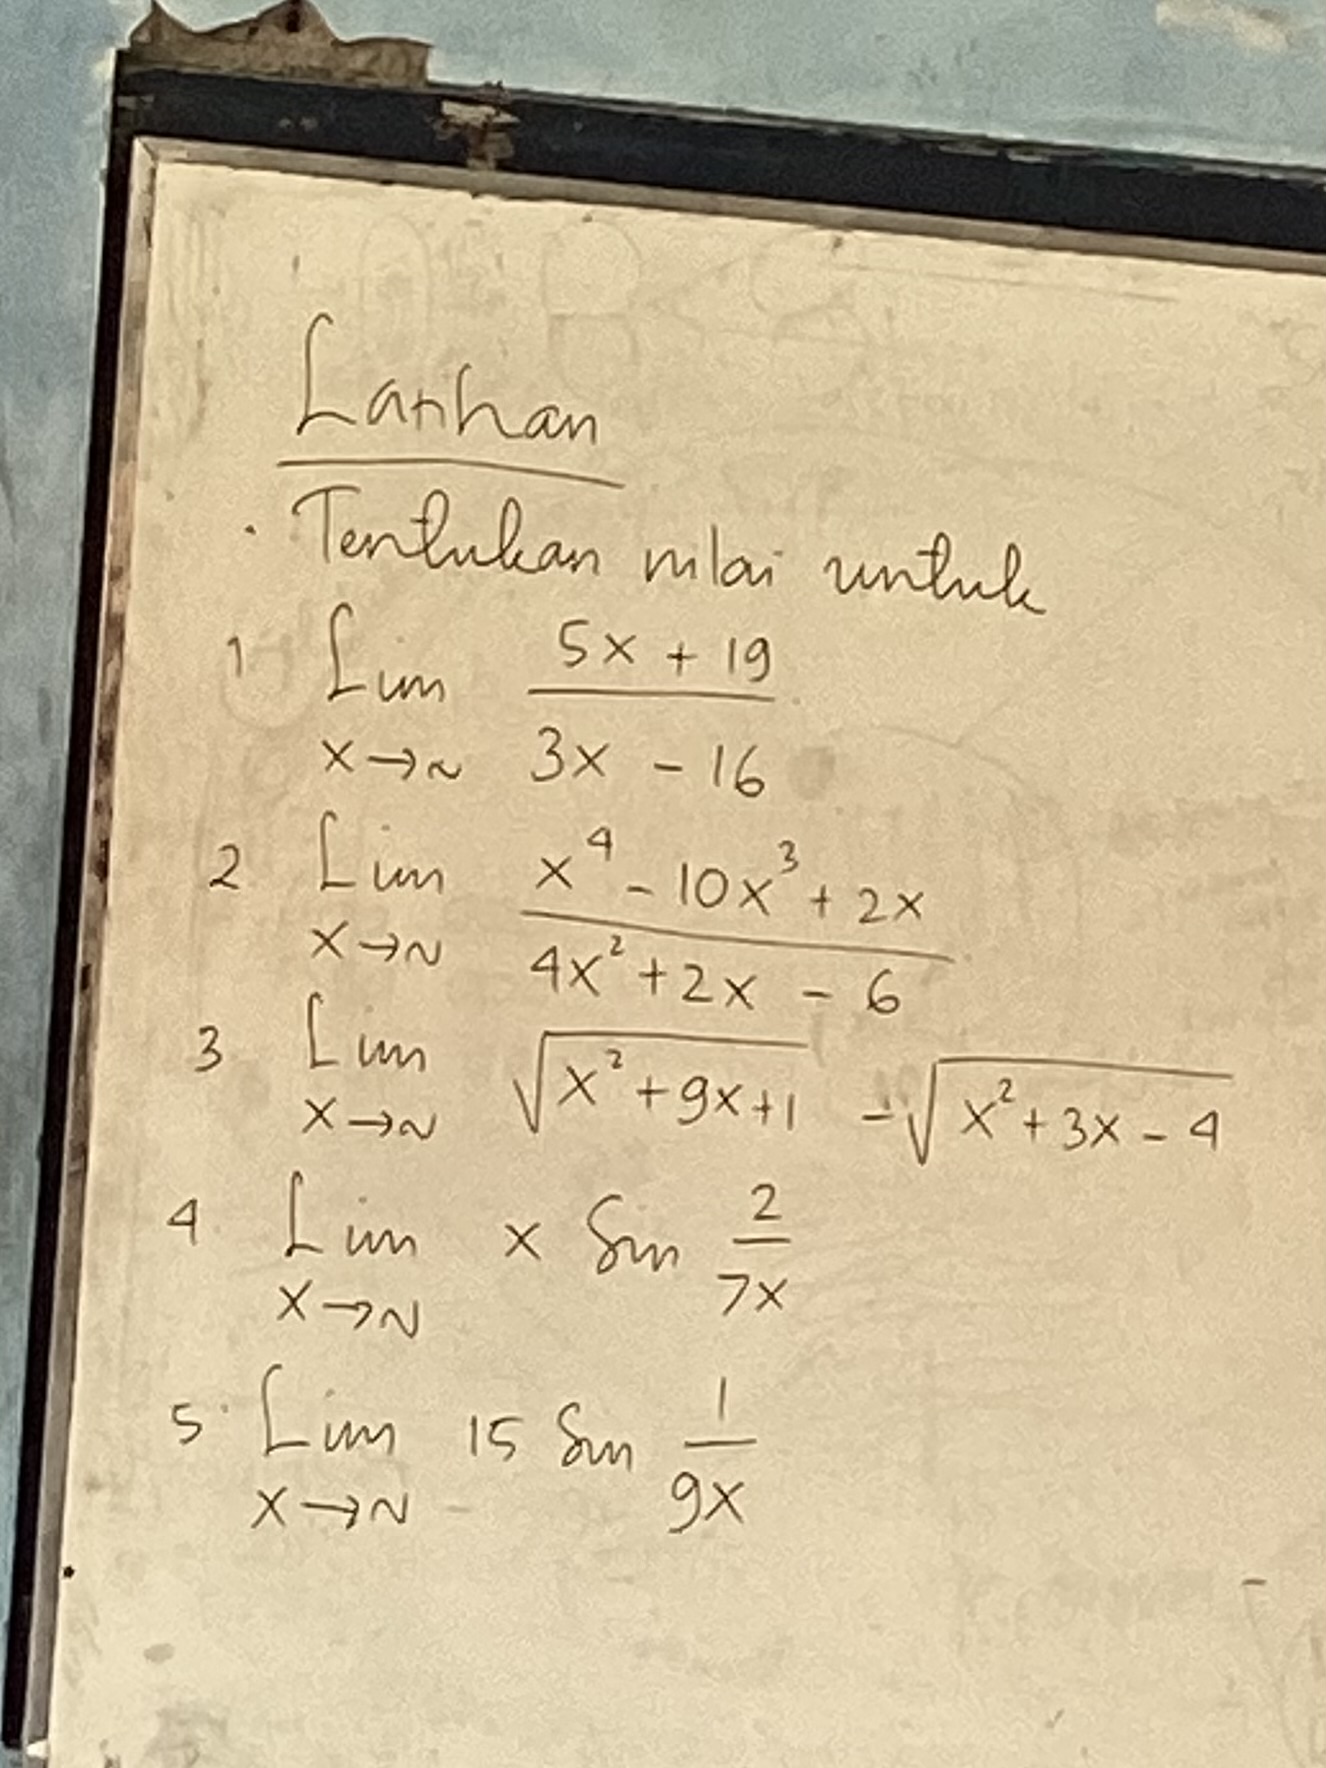 Latihan
Tentukan nilai untuk
1 Lim 5x + 19
x→~ 3x - 16
2 Lim x⁴ - 10x³ + 2x
x→~ 4x² + 2x - 6
3 Lim √x² + 9x + 1 - √x² + 3x - 4
x→~
4. Lim x Sin 2
x→~ 7x
5. Lim 15 Sin 1
x→~ 9x